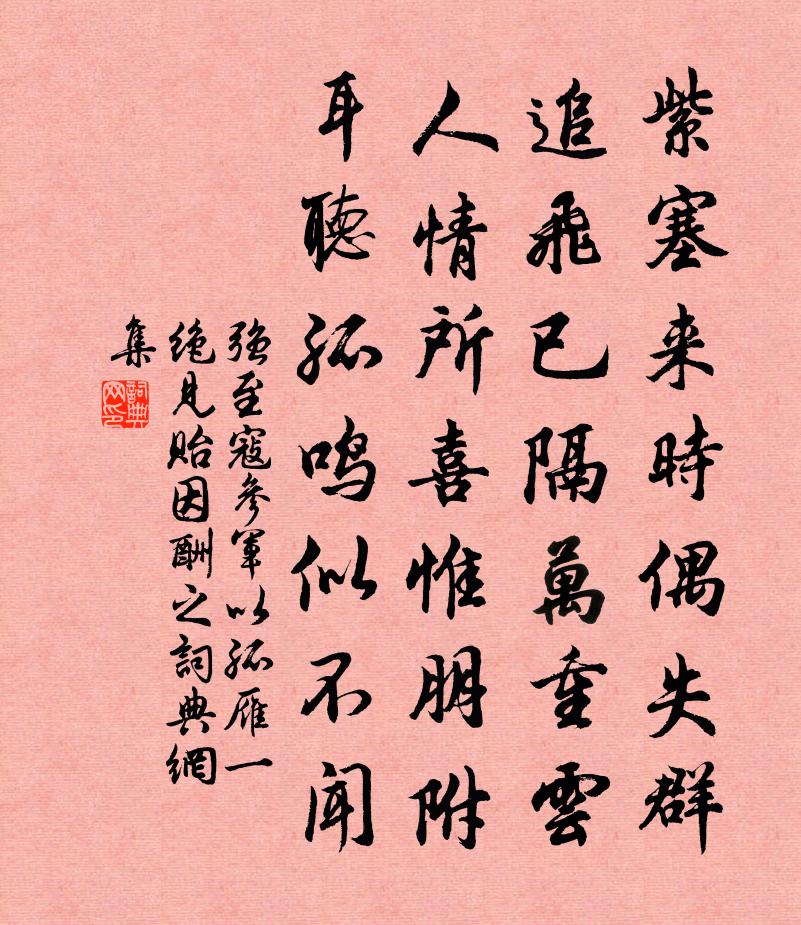 紫塞来時偶失群
追飛已隔萬重雲
人情所喜惟朋附
耳聽孤鳴似不闻
強至寇參軍以孤雁一
绝見貽因酬之詞典網
集
詞典網印